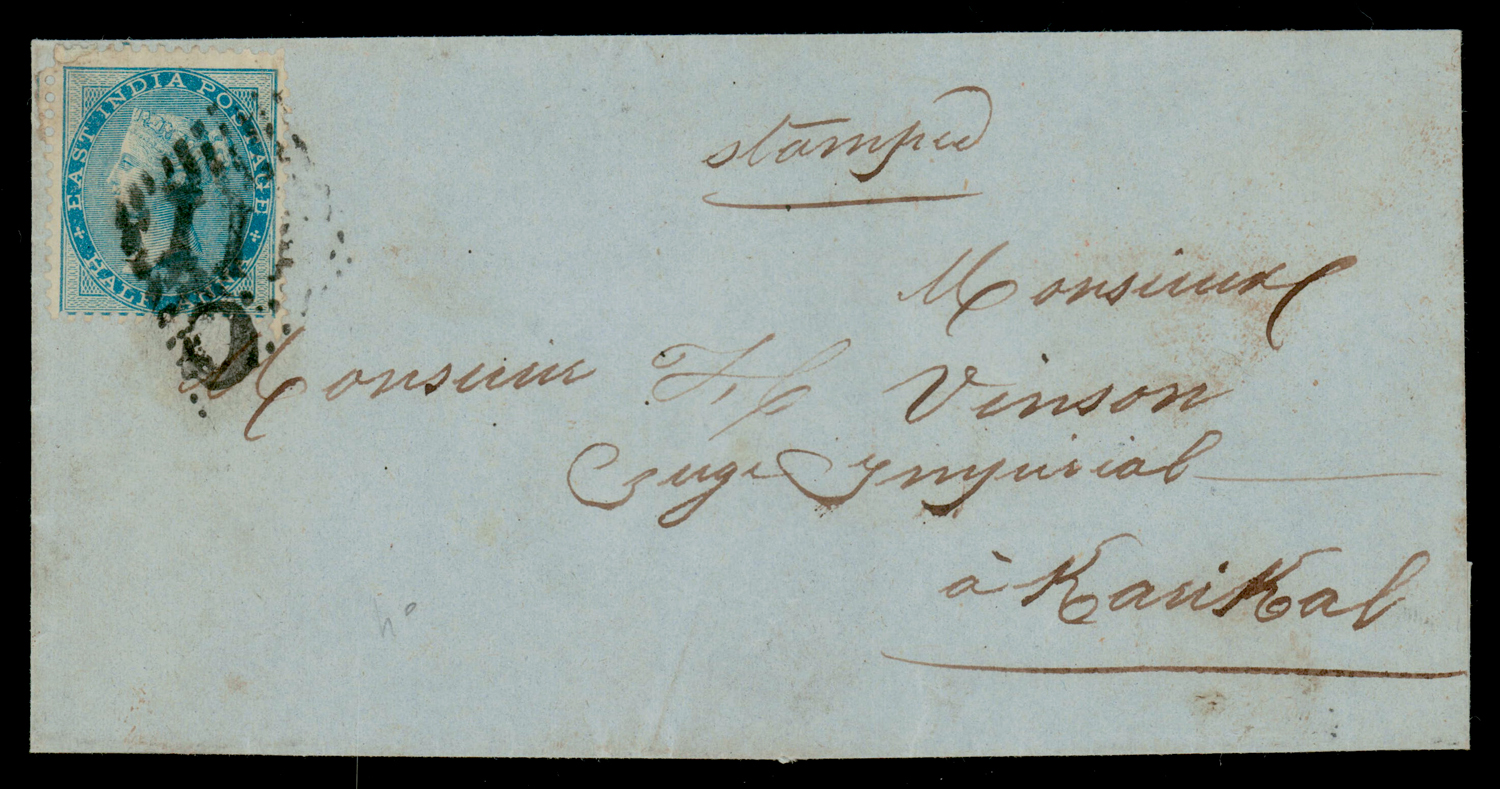 EAST INDIA POSTAGE
HALF ANNA
stamped
Monsieur
Monsieur F. C Vinson
Juge Impérial
à Karikal